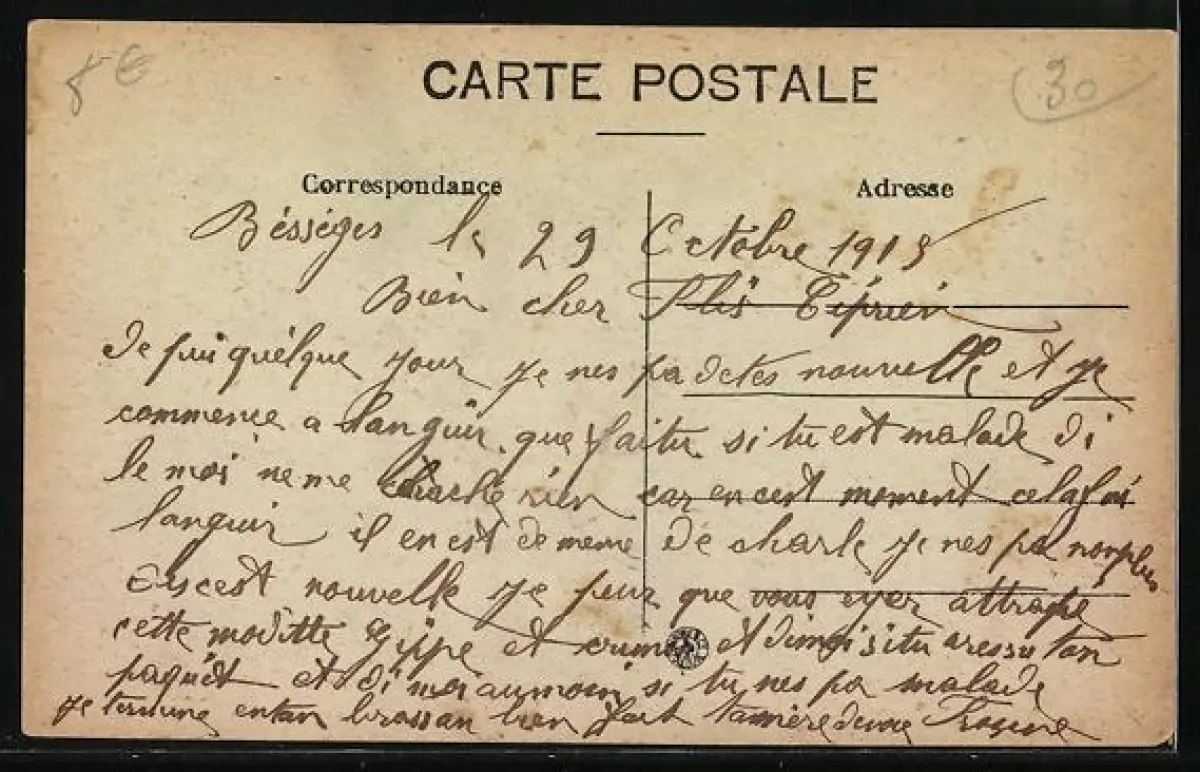 8€
30
CARTE POSTALE
Correspondance
Adresse
Bésséges le 29 Octobre 1915
Bien cher Fils Ciprien
De puis quélque jour je nes pa de tes nouvelle et je
commence a languir que fai tu si tu est malade di
le moi ne me cache rien car en cest moment cela fai
languir il en est de meme de charle je nes pa nonplus
eus cest nouvelle je peur que vous eyer attrape
cette moditte Grippe et et dimoi si tu a ressu ton
paquêt et di moi aumoin si tu nes pa malade
je termine entan brassan bien fort ta mère